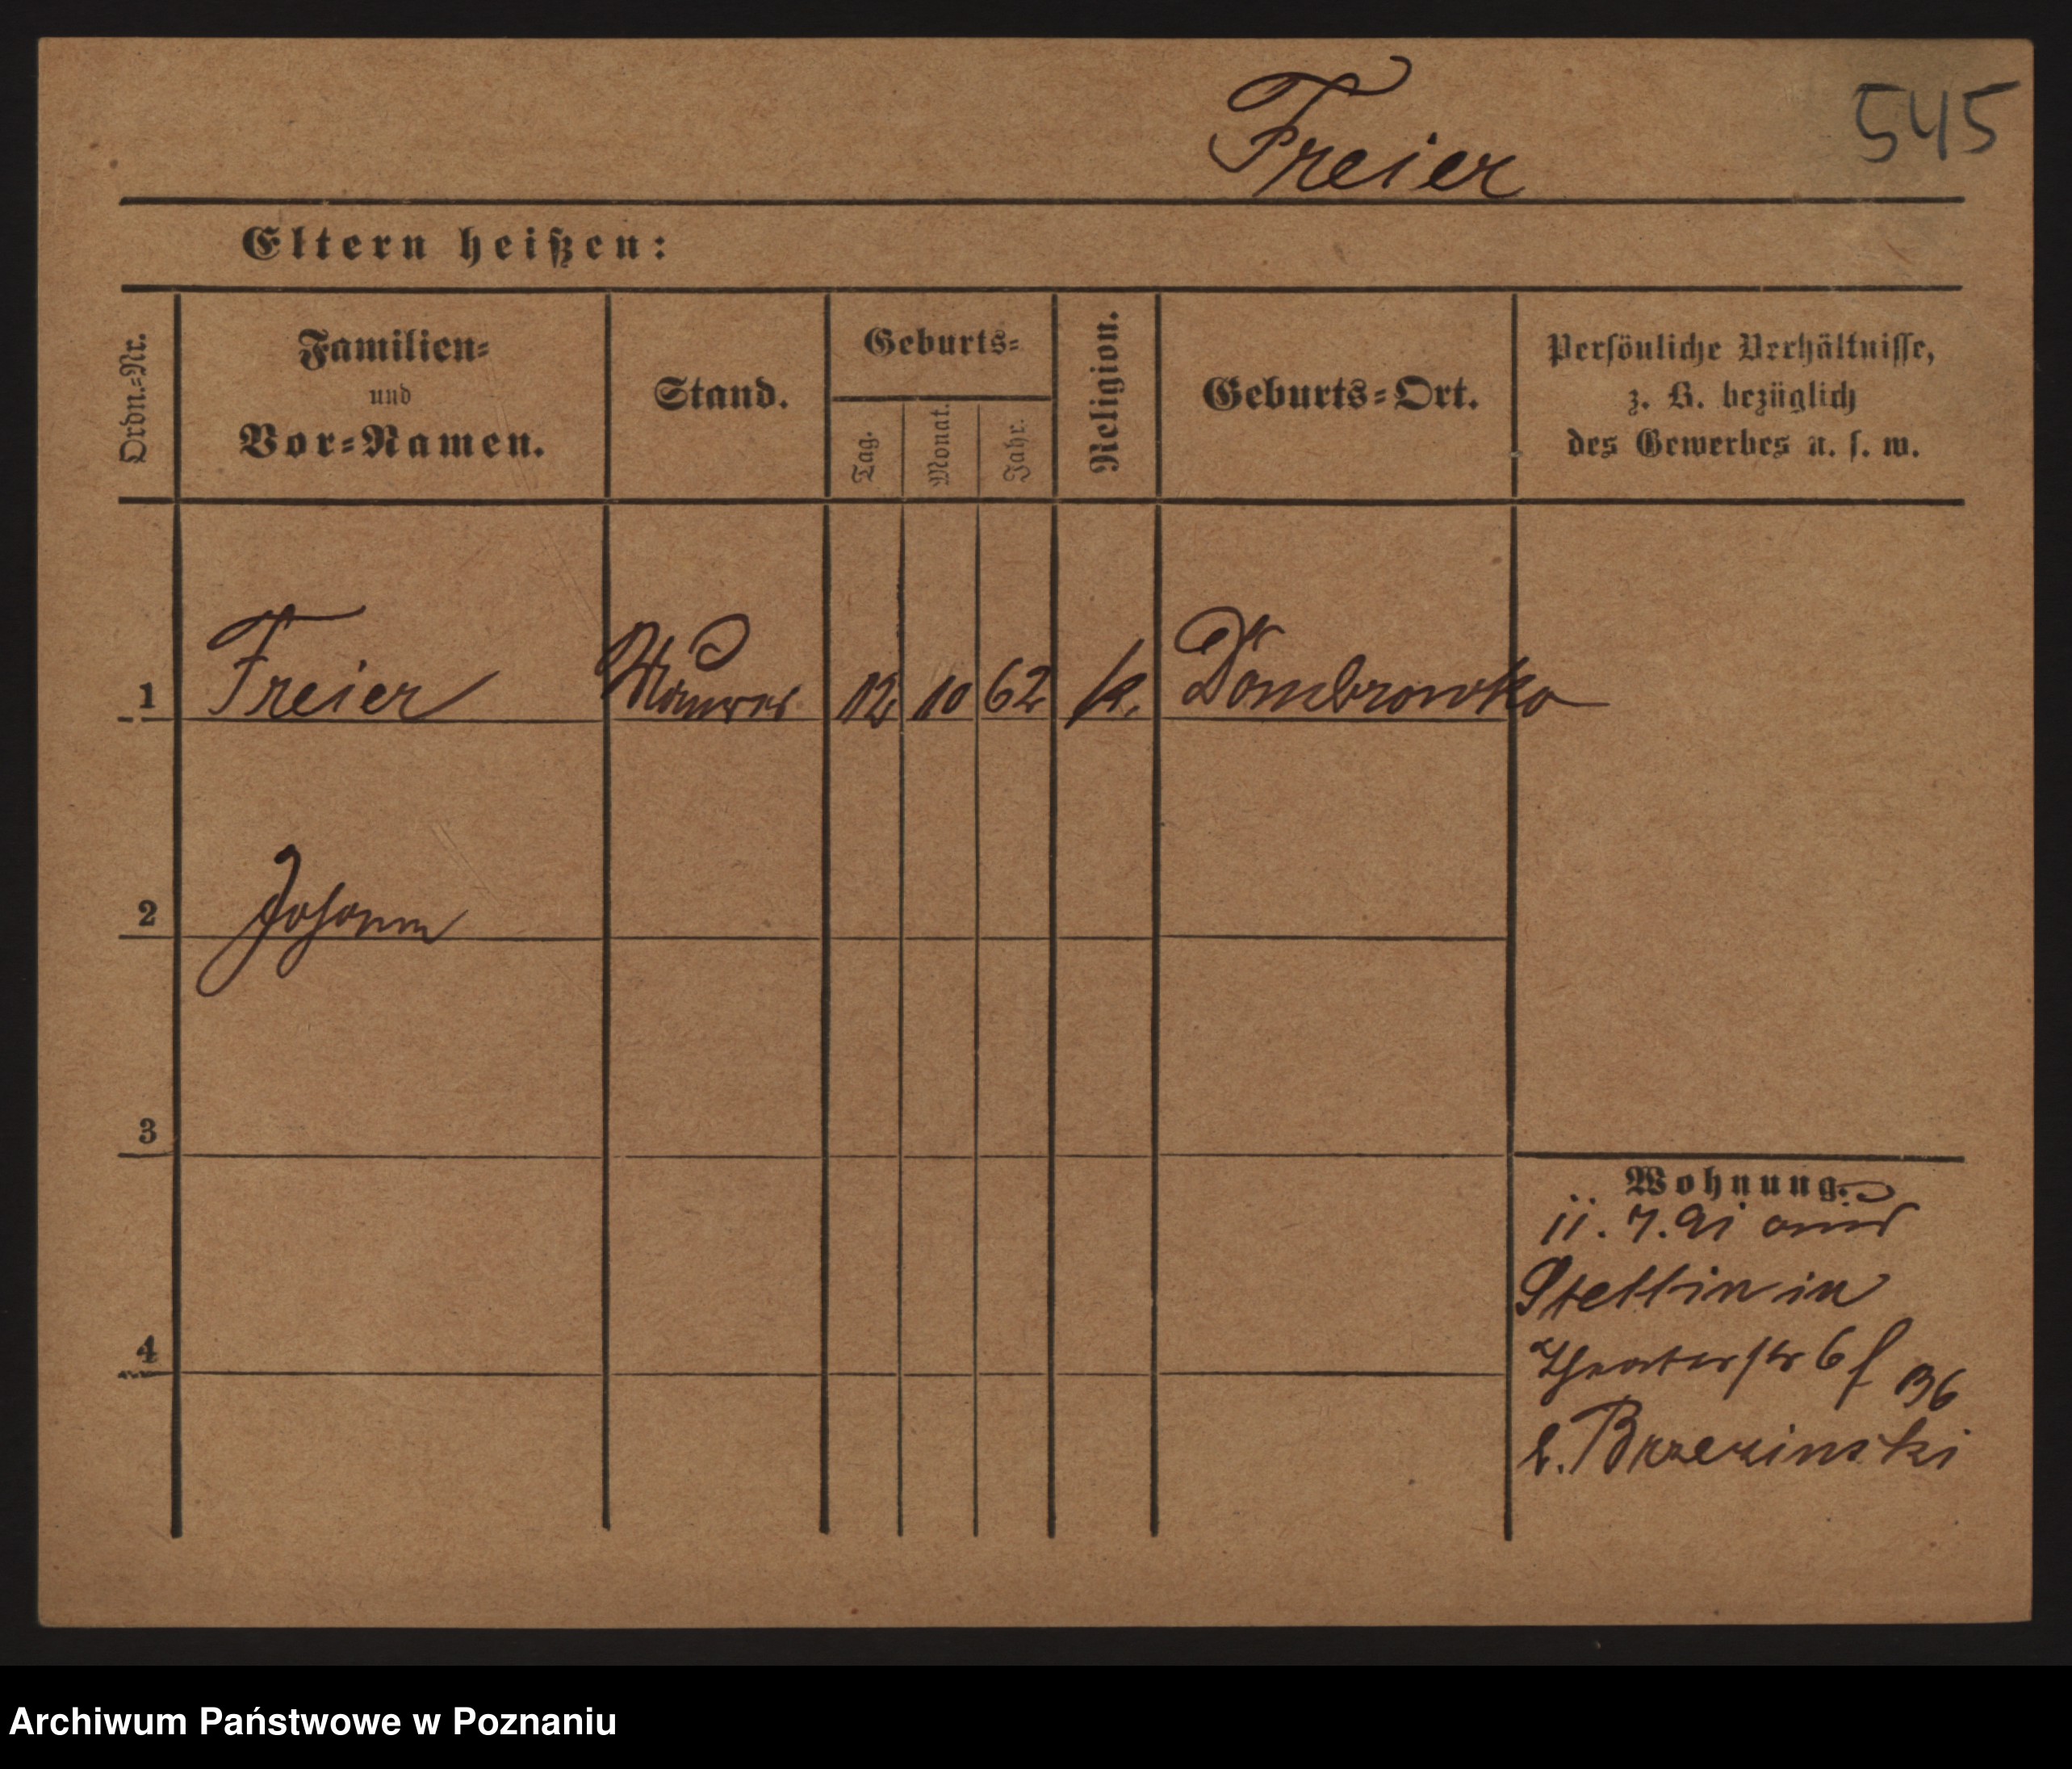 Freier
545
Eltern heißen:
Ordn.=Nr.
Familien=
und
Vor=Namen.
Stand.
Geburts=
Tag.
Monat.
Jahr.
Religion.
Geburts=Ort.
Persönliche Verhältnisse,
z. B. bezüglich
des Gewerbes u. s. w.
1 Freier Maurer 12 10 62 k. Dombrowka
2 Johann
3
Wohnung.
11. 7. 91 aus
Stettin in
4
Theaterstr 6
b. Brzezinski
Archiwum Państwowe w Poznaniu